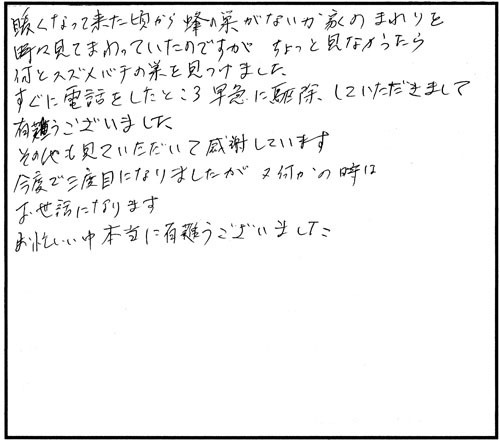 暖くなって来た頃から 蜂の巣がないか家のまわりを
時々見てまわっていたのですが ちょっと見なかったら
何とスズメバチの巣を見つけました
すぐに電話をしたところ早急に駆除していただきまして
有難うございました
その他も見ていただいて感謝しています
今度で三度目になりましたが 又何かの時は
お世話になります
お忙しい中本当に有難うございました